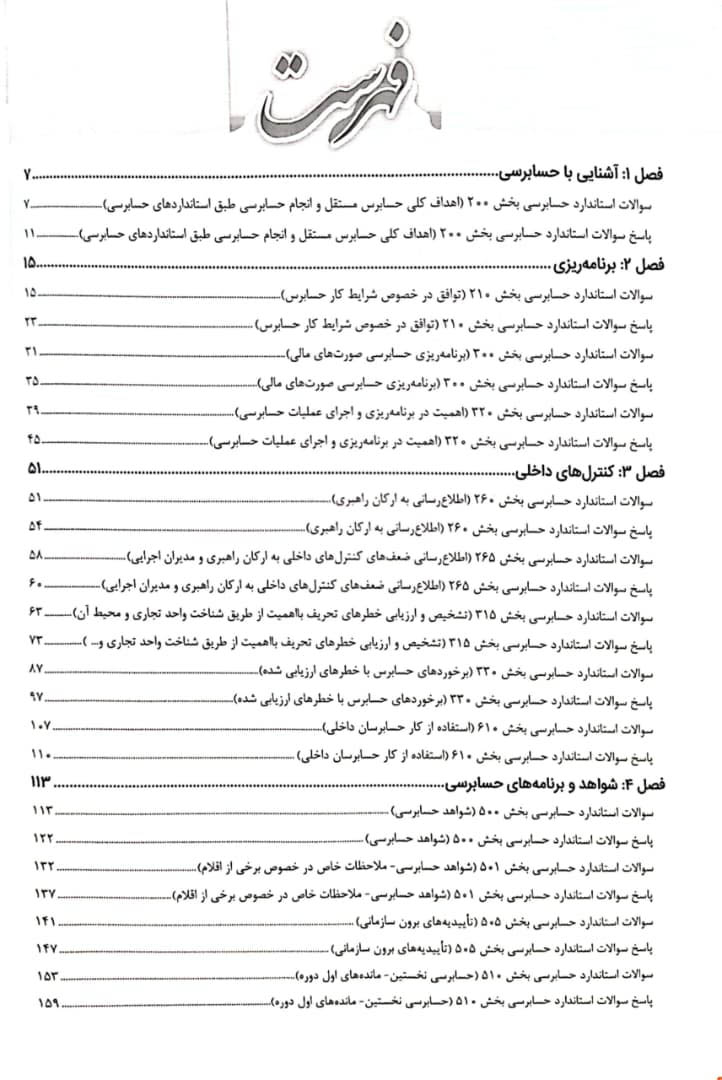 فهرست
فصل ۱: آشنایی با حسابرسی ۷
سوالات استاندارد حسابرسی بخش ۲۰۰ (اهداف کلی حسابرس مستقل و انجام حسابرسی طبق استانداردهای حسابرسی) ۷
پاسخ سوالات استاندارد حسابرسی بخش ۲۰۰ (اهداف کلی حسابرس مستقل و انجام حسابرسی طبق استانداردهای حسابرسی) ۱۱
فصل ۲: برنامه‌ریزی ۱۵
سوالات استاندارد حسابرسی بخش ۲۱۰ (توافق در خصوص شرایط کار حسابرس) ۱۵
پاسخ سوالات استاندارد حسابرسی بخش ۲۱۰ (توافق در خصوص شرایط کار حسابرس) ۲۳
سوالات استاندارد حسابرسی بخش ۳۰۰ (برنامه‌ریزی حسابرسی صورت‌های مالی) ۳۱
پاسخ سوالات استاندارد حسابرسی بخش ۳۰۰ (برنامه‌ریزی حسابرسی صورت‌های مالی) ۳۵
سوالات استاندارد حسابرسی بخش ۳۲۰ (اهمیت در برنامه‌ریزی و اجرای عملیات حسابرسی) ۳۹
پاسخ سوالات استاندارد حسابرسی بخش ۳۲۰ (اهمیت در برنامه‌ریزی و اجرای عملیات حسابرسی) ۴۵
فصل ۳: کنترل‌های داخلی ۵۱
سوالات استاندارد حسابرسی بخش ۲۶۰ (اطلاع‌رسانی به ارکان راهبری) ۵۱
پاسخ سوالات استاندارد حسابرسی بخش ۲۶۰ (اطلاع‌رسانی به ارکان راهبری) ۵۴
سوالات استاندارد حسابرسی بخش ۲۶۵ (اطلاع‌رسانی ضعف‌های کنترل‌های داخلی به ارکان راهبری و مدیران اجرایی) ۵۸
پاسخ سوالات استاندارد حسابرسی بخش ۲۶۵ (اطلاع‌رسانی ضعف‌های کنترل‌های داخلی به ارکان راهبری و مدیران اجرایی) ۶۰
سوالات استاندارد حسابرسی بخش ۳۱۵ (تشخیص و ارزیابی خطرهای تحریف بااهمیت از طریق شناخت واحد تجاری و محیط آن) ۶۳
پاسخ سوالات استاندارد حسابرسی بخش ۳۱۵ (تشخیص و ارزیابی خطرهای تحریف بااهمیت از طریق شناخت واحد تجاری و... ) ۷۳
سوالات استاندارد حسابرسی بخش ۳۳۰ (برخوردهای حسابرس با خطرهای ارزیابی شده) ۸۷
پاسخ سوالات استاندارد حسابرسی بخش ۳۳۰ (برخوردهای حسابرس با خطرهای ارزیابی شده) ۹۷
سوالات استاندارد حسابرسی بخش ۶۱۰ (استفاده از کار حسابرسان داخلی) ۱۰۷
پاسخ سوالات استاندارد حسابرسی بخش ۶۱۰ (استفاده از کار حسابرسان داخلی) ۱۱۰
فصل ۴: شواهد و برنامه‌های حسابرسی ۱۱۳
سوالات استاندارد حسابرسی بخش ۵۰۰ (شواهد حسابرسی) ۱۱۳
پاسخ سوالات استاندارد حسابرسی بخش ۵۰۰ (شواهد حسابرسی) ۱۲۲
سوالات استاندارد حسابرسی بخش ۵۰۱ (شواهد حسابرسی- ملاحظات خاص در خصوص برخی از اقلام) ۱۳۲
پاسخ سوالات استاندارد حسابرسی بخش ۵۰۱ (شواهد حسابرسی- ملاحظات خاص در خصوص برخی از اقلام) ۱۳۷
سوالات استاندارد حسابرسی بخش ۵۰۵ (تأییدیه‌های برون سازمانی) ۱۴۱
پاسخ سوالات استاندارد حسابرسی بخش ۵۰۵ (تأییدیه‌های برون سازمانی) ۱۴۷
سوالات استاندارد حسابرسی بخش ۵۱۰ (حسابرسی نخستین- مانده‌های اول دوره) ۱۵۳
پاسخ سوالات استاندارد حسابرسی بخش ۵۱۰ (حسابرسی نخستین- مانده‌های اول دوره) ۱۵۹